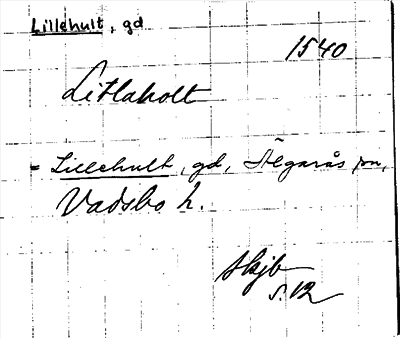 Lillehult, gd
1540
Litlaholt
= Lillehult, gd, Älgarås sn,
Vadsbo h.
Skjb
s. 12